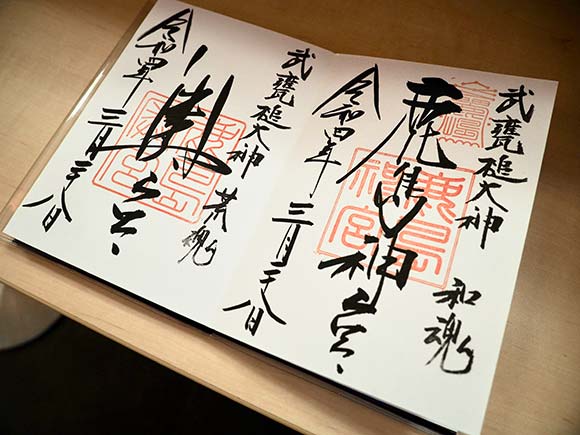 武甕槌大神 和魂
鹿島神宮
鹿島神宮
令和四年 三月二十八日
武甕槌大神 荒魂
宮
鹿島神宮
令和四年 三月二十八日